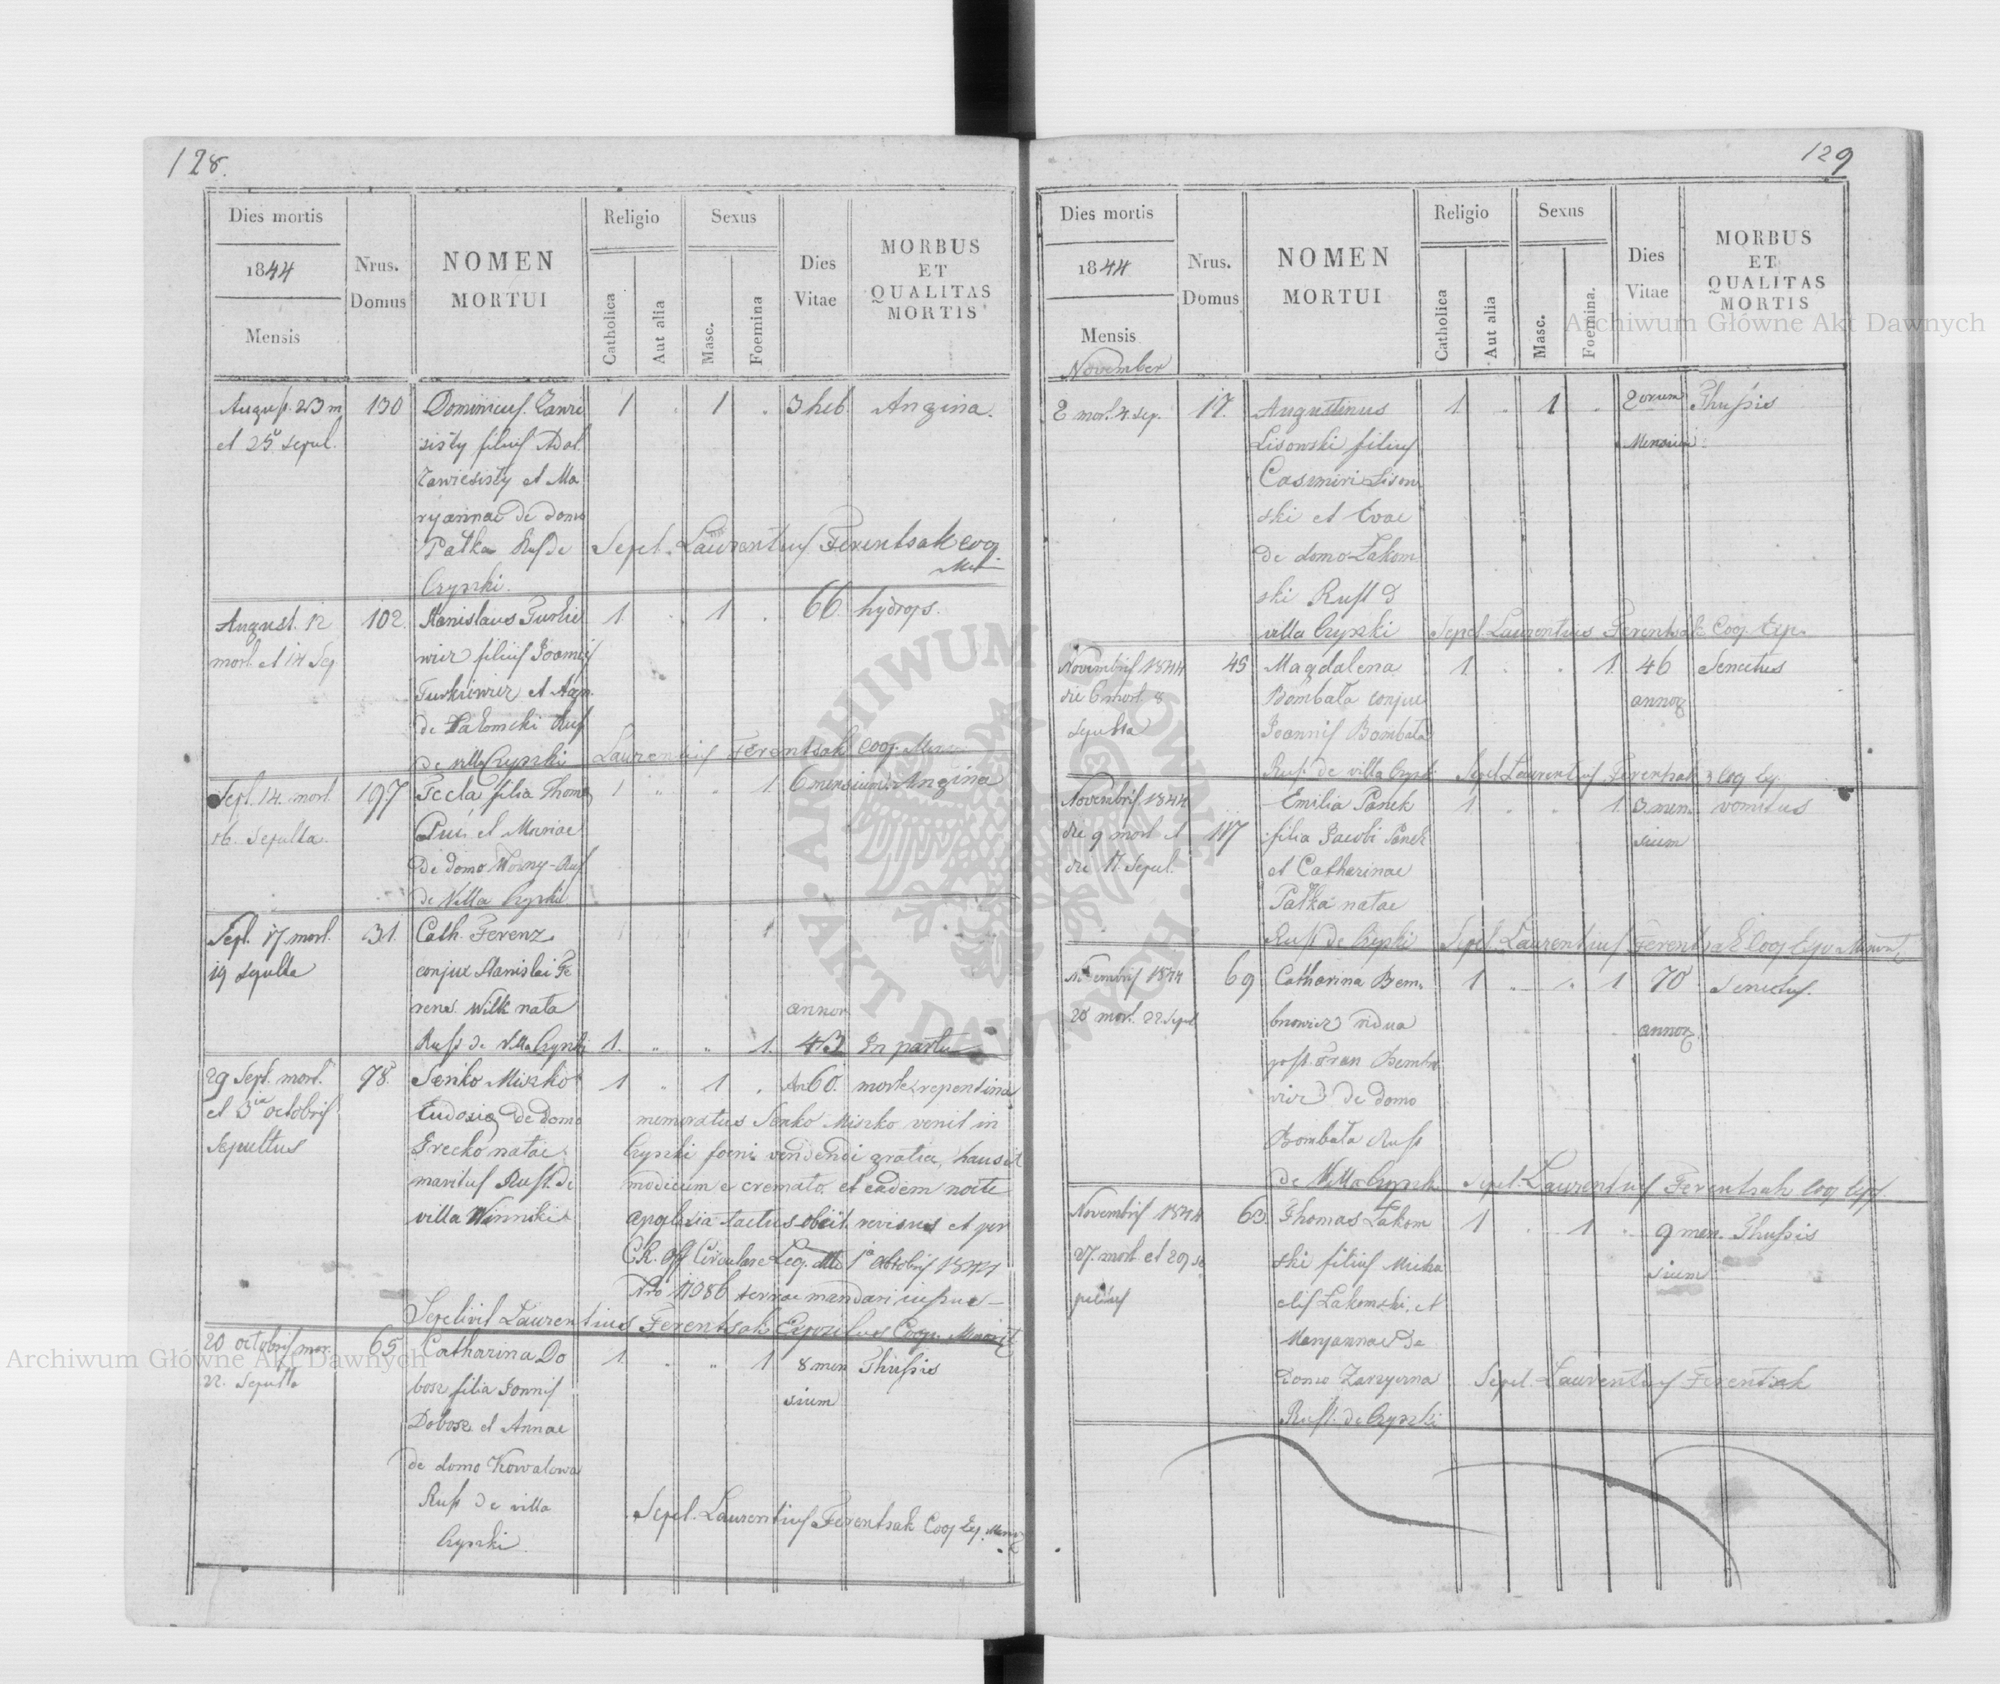 128.
Dies mortis
1844
Mensis
Nrus.
Domus
NOMEN
MORTUI
Religio
Catholica
Aut alia
Sexus
Masc.
Foemina
Dies
Vitae
MORBUS
ET
QUALITAS
MORTIS
August. 23 m
et 25 sepul.
130
Dominicus
filius
et Ma
ryannae de domo
Pałka Rus. de
Czyszki.
1 1
3 heb
Angina.
Sepel. Laurentius Ferentsak coop
August. 12
mort. et 14 Sep
102.
Stanislaus Turkie
wicz filius Joannis
Turkiewicz et Agn.
de
de villa Czyszki
1 1
66
hydrops.
Laurentius Ferentsak Coop.
Sept. 14 mort.
16. Sepulta.
197
Tecla filia Thomae
et Mariae
de domo Woźny Rus.
de Villa Czyszki
1 1
6 mensium
Angina
Sept. 17 mort.
19 sepulta
31.
Cath. Ferenz
conjux Stanislai Fe
renz Wilk nata
Rus. de Villa Czyszki
1. 1.
annor
43
In partu
29 Sept. mort.
et 3 octobris
Sepultus
78.
Senko Miszko
Eudosiae de domo
Grecko natae
maritus Rust. de
villa Winniki
1 1
An 60.
morte repentina
memoratus Senko Miszko venit in
Czyszki foeni vendendi gratia, hausit
modicum e cremato et eadem nocte
apoplexia tactus obiit revisus et per
C.R. Off Circulare Leop. dtto 1 octobris 1844
Nro 11086 terrae mandari
Sepelivit Laurentius Ferentsak Expositus Coop. Minorit
20 octobris mor.
22. Sepulta
65
Catharina Do
bosz filia Joannis
Dobosz et Annae
de domo Kowalowa
Rus. de villa
Czyszki
1. 1
8 men
sium
Thussis
Sepel. Laurentius Ferentsak Coop Ex.
129
Dies mortis
1844
Mensis
November
Nrus.
Domus
NOMEN
MORTUI
Religio
Catholica
Aut alia
Sexus
Masc.
Foemina.
Dies
Vitae
MORBUS
ET
QUALITAS
MORTIS
2 mor. 4 sep.
17.
Augustinus
Lisowski filius
Casimiri Lisow
ski et Evae
de domo Łakom
ski Rust d
villa Czyszki
1 1
2 orum
Mensium
Thussis
Sepel Laurentius Ferentsak Coop Exp.
Novembris 1844
die 6 mort. 8
sepulta
45
Magdalena
Bombała conjux
Joannis Bombała
Rus. de villa Czysz
1. 1.
46
annor
Senectus
Sepel Laurentius Ferentsak Coop Ex.
Novembris 1844
die 9 mort et
die 11 Sepul.
117
Emilia Panek
filia Jacobi Panek
et Catharinae
Pałka natae
Rust de Czyszki
1. 1.
3 men
sium
vomitus
Sepel. Laurentius Ferentsak Coop Exp Minorit
Novembris 1844
20 mort. 22 Sepul
69
Catharina Bem
bnowicz vidua
post Fran Bembn
wicz de domo
Bombała Rust
de Villa Czyszk
1 1
70
annor.
senectus.
Sepel. Laurentius Ferentsak Coop Exp.
Novembris 1844
27. mort et 29 se
pultus
63.
Thomas Łakom
ski filius Micha
elis Łakomski et
Maryannae de
domo
Rust. de Czyszki
1 1
9 men
sium
Thussis
Sepel. Laurentius Ferentsak
Archiwum Główne Akt Dawnych
Archiwum Główne Akt Dawnych
ARCHIWUM GŁÓWNE AKT DAWNYCH